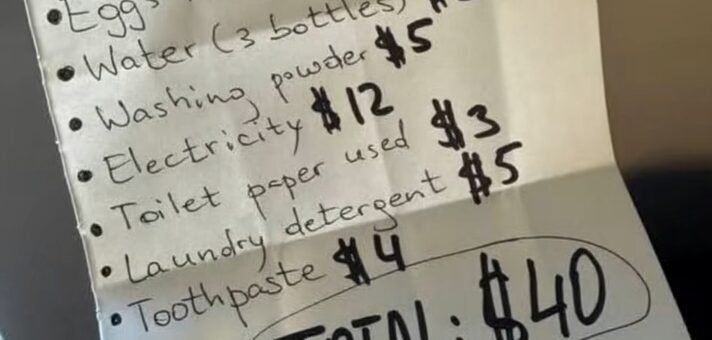 • Eggs
• Water (3 bottles)
• Washing powder $5
• Electricity $12
• Toilet paper used $3
• Laundry detergent $5
• Toothpaste $4
TOTAL: $40